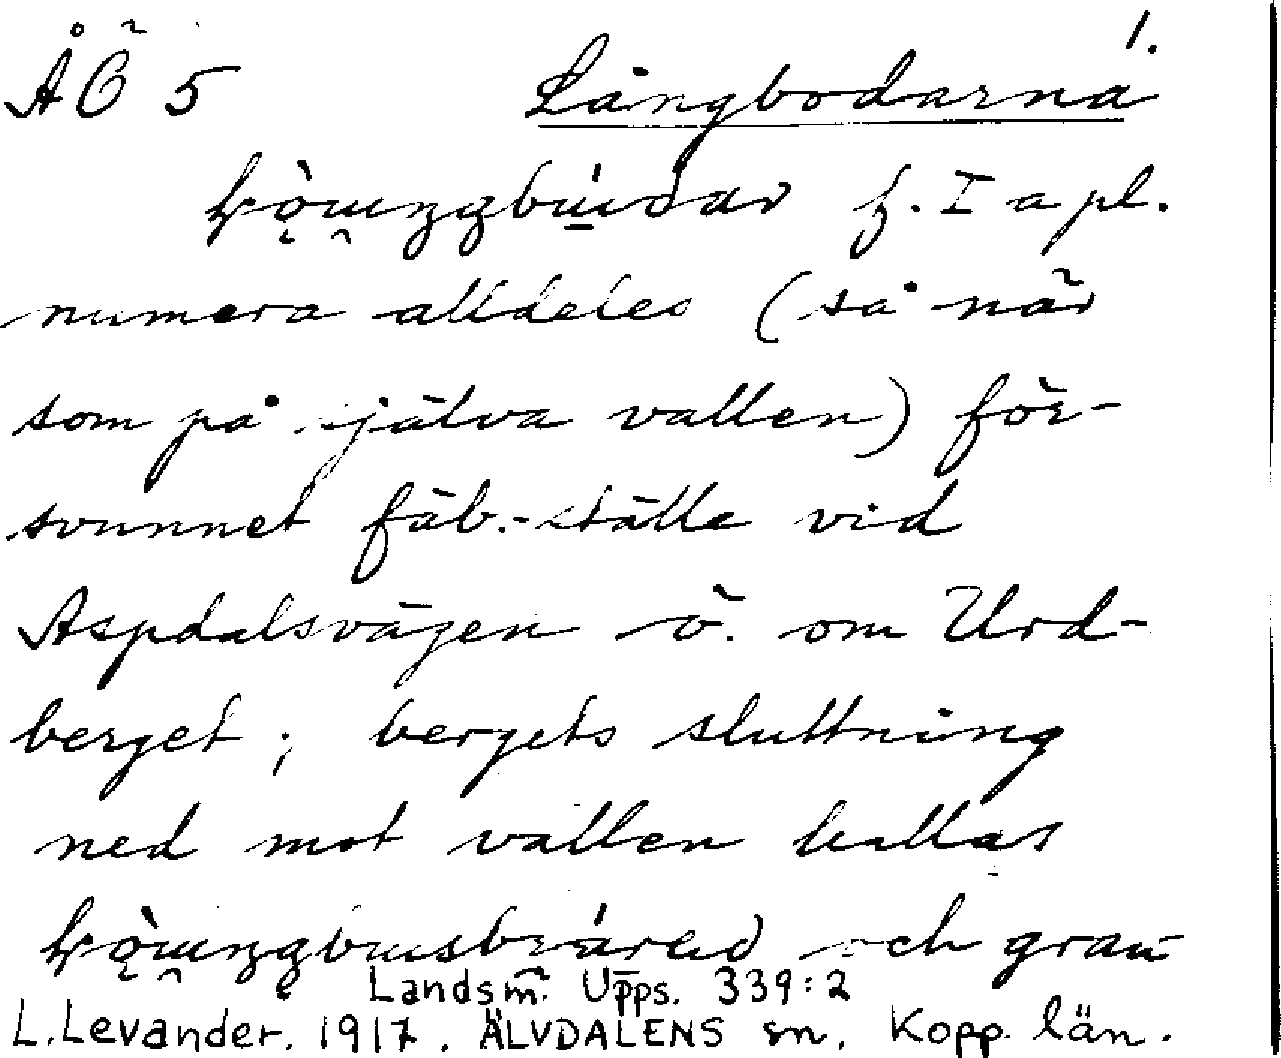 ÅÖ 5 Långbodarna 1.
f. I a pl.
numera alldeles (så när
som på själva vallen) för-
svunnet fäb.-ställe vid
Aspdalsvägen ö. om Urd-
berget; bergets sluttning
ned mot vallen kallas
och gran-
Landsm. Upps. 339:2
L. Levander. 1917. ÄLVDALENS sn. Kopp. län.